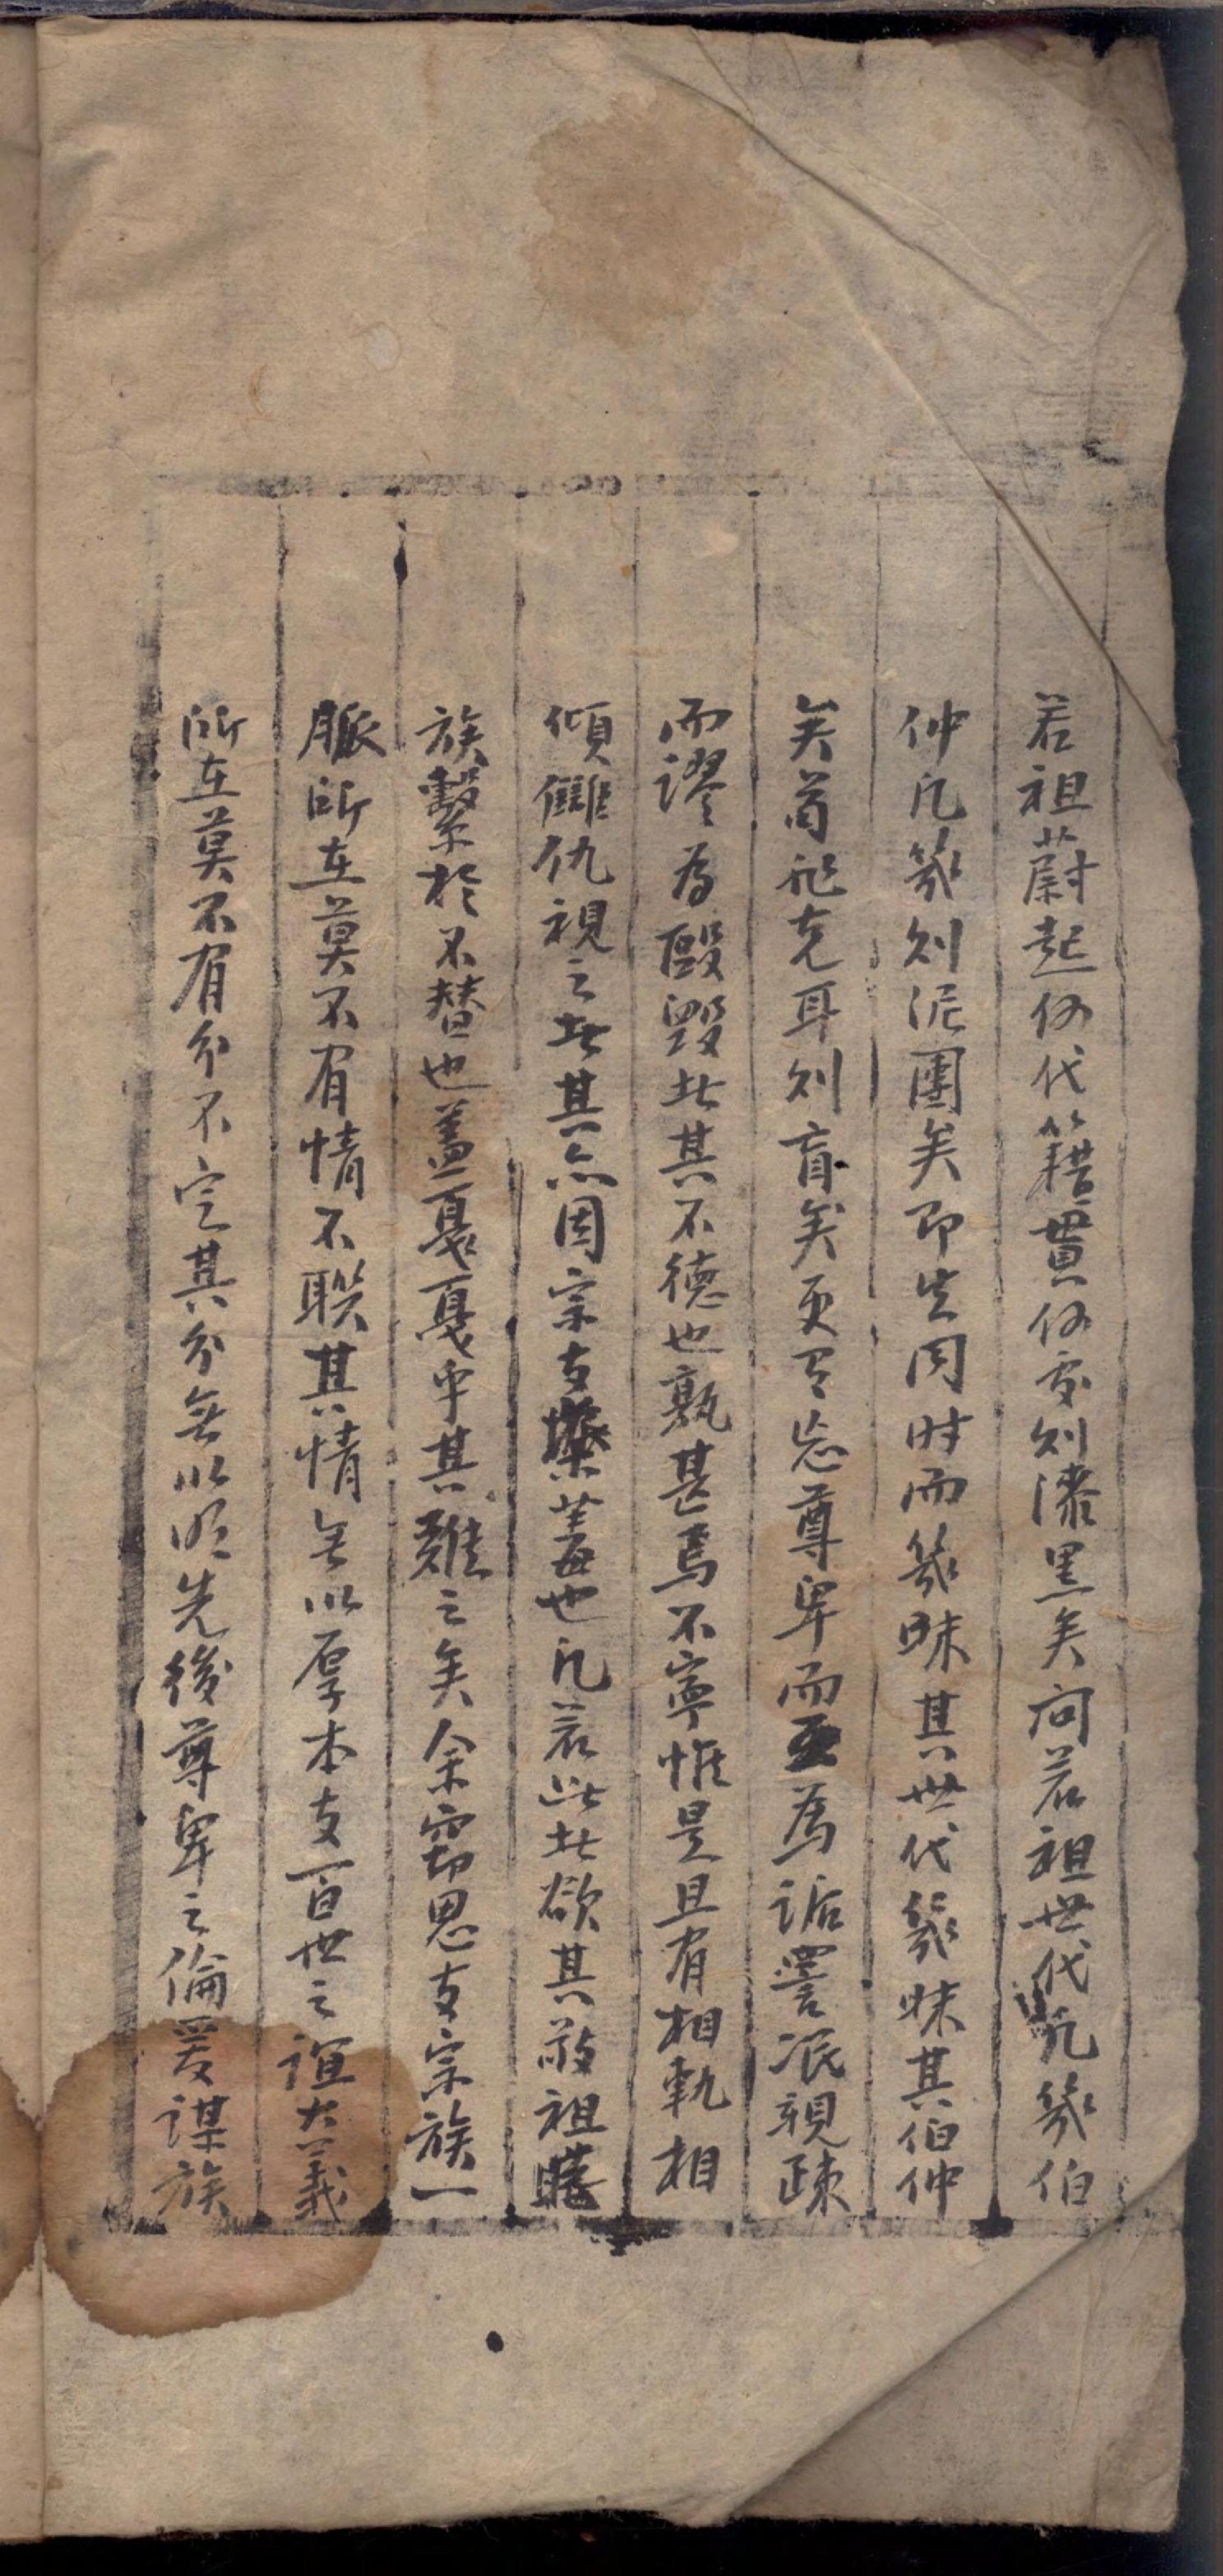 若祖蔚起何代籍貫何處則漆黑矣问若祖世代凡幾伯
仲凡幾则泥團矣即生同时而幾昧其世代幾昧其伯仲
矣苟能克耳则盲矣更有忘尊卑而互為詬詈泯親疎
而謬為毆毀此其不德也孰甚焉不寧惟是且有相軌相
傾讎仇視之此其亦因宗支蓋也凡若此此欲其敬祖睦
族繫於不替也盖戛戛乎其難之矣余窃思支宗族一
脈所在莫不有情不聯其情無以厚本支百世之誼大義
所在莫不有分不定其分無以明先後尊卑之倫爰謀族